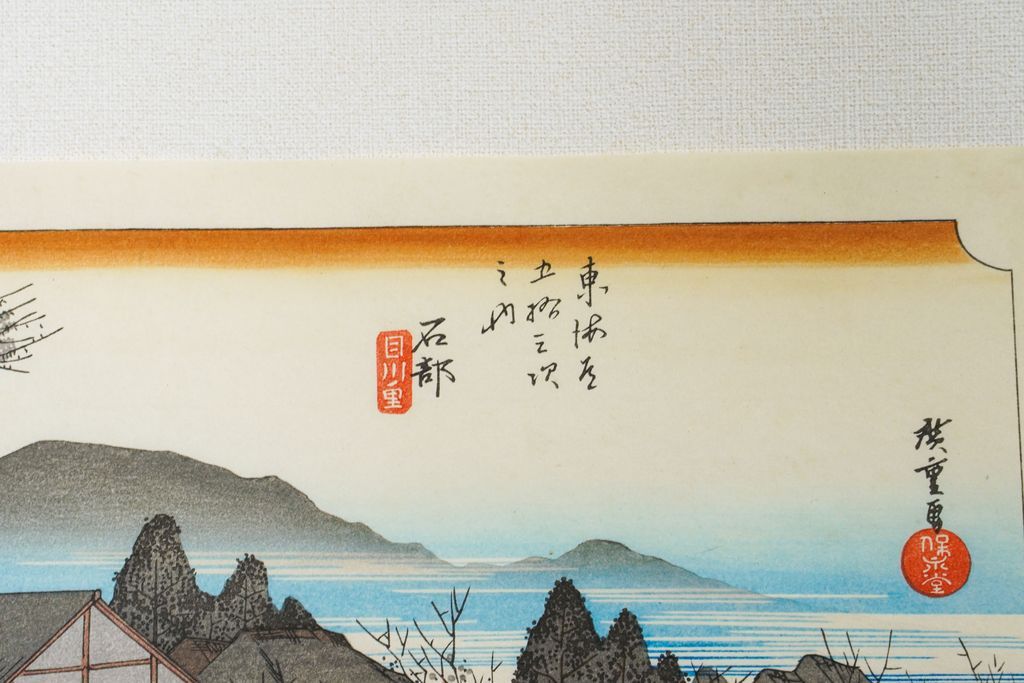 東海道
五拾三次
之内
石部
目川ノ里
廣重画
保永堂